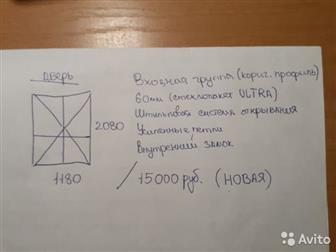 дверь
Входная группа (кориг. профиль)
60мм (стеклопакет ULTRA)
2080
Штыльповая система открывания
Усиленные петли
Внутренний замок
1180
15000 руб. (НОВАЯ)
Avito